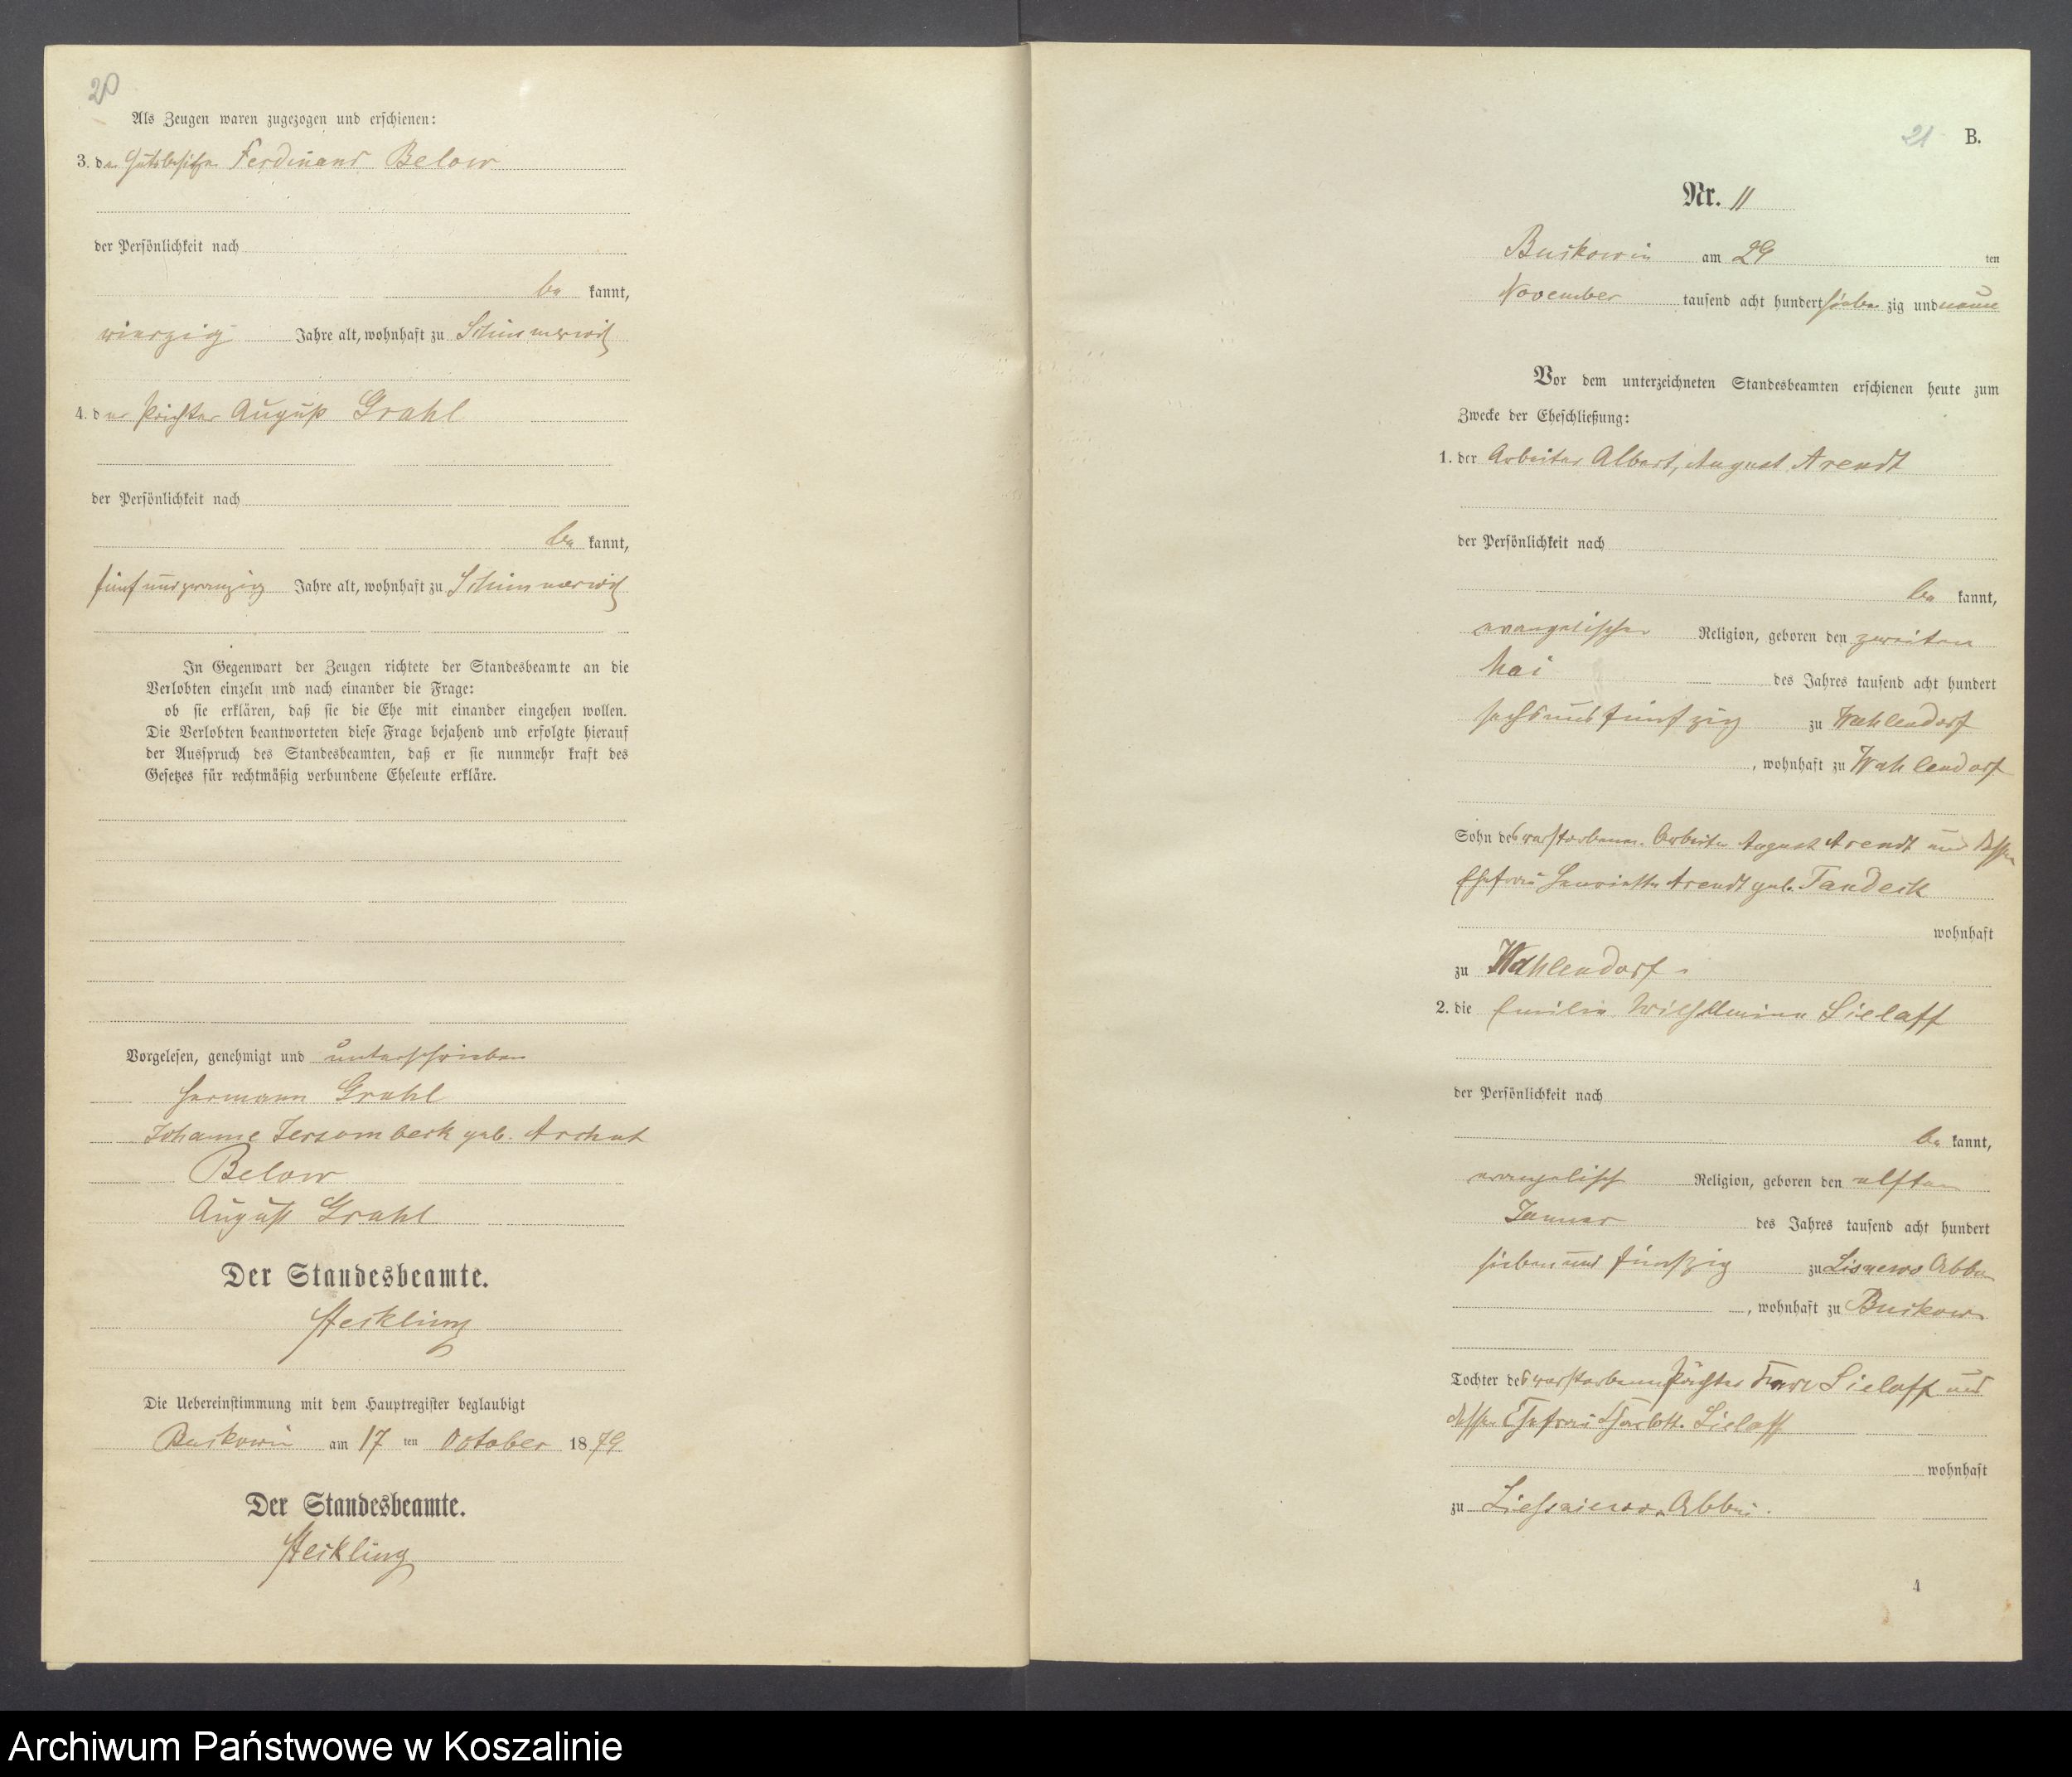 20
Als Zeugen waren zugezogen und erschienen:
3. der Gutsbesitzer Ferdinand Below
der Persönlichkeit nach
be kannt,
vierzig Jahre alt, wohnhaft zu Schimmerwitz
4. der Pächter August Grahl
der Persönlichkeit nach
be kannt,
fünfundzwanzig Jahre alt, wohnhaft zu Schimmerwitz
In Gegenwart der Zeugen richtete der Standesbeamte an die
Verlobten einzeln und nach einander die Frage:
ob sie erklären, daß sie die Ehe mit einander eingehen wollen.
Die Verlobten beantworteten diese Frage bejahend und erfolgte hierauf
der Ausspruch des Standesbeamten, daß er sie nunmehr kraft des
Gesetzes für rechtmäßig verbundene Eheleute erkläre.
Vorgelesen, genehmigt und unterschrieben
Hermann Grahl
Johanne geb.
Below
August Grahl
Der Standesbeamte.
Die Uebereinstimmung mit dem Hauptregister beglaubigt
Buskowin am 17 ten October 1879
Der Standesbeamte.
21 B.
Nr. 11
Buskowin am 29 ten
November tausend acht hundert sieben zig und neun
Vor dem unterzeichneten Standesbeamten erschienen heute zum
Zwecke der Eheschließung:
1. der Arbeiter Albert, August Arendt
der Persönlichkeit nach
be kannt,
evangelischer Religion, geboren den zweiten
Mai des Jahres tausend acht hundert
sechsundfünfzig zu Wahlendorf
, wohnhaft zu Wahlendorf
Sohn des verstorbenen Arbeiter August Arendt und dessen
Ehefrau Henriette Arendt geb. Tandeck
wohnhaft
zu Wahlendorf.
2. die Emilie Wilhelmine Sielaff
der Persönlichkeit nach
be kannt,
evangelisch Religion, geboren den elften
Januar des Jahres tausend acht hundert
siebenundfünfzig zu Abbau
, wohnhaft zu Buskow
Tochter des verstorbenen Pächter Sielaff und
dessen Ehefrau Charlotte Sielaff
wohnhaft
zu Abbau.
4
Archiwum Państwowe w Koszalinie